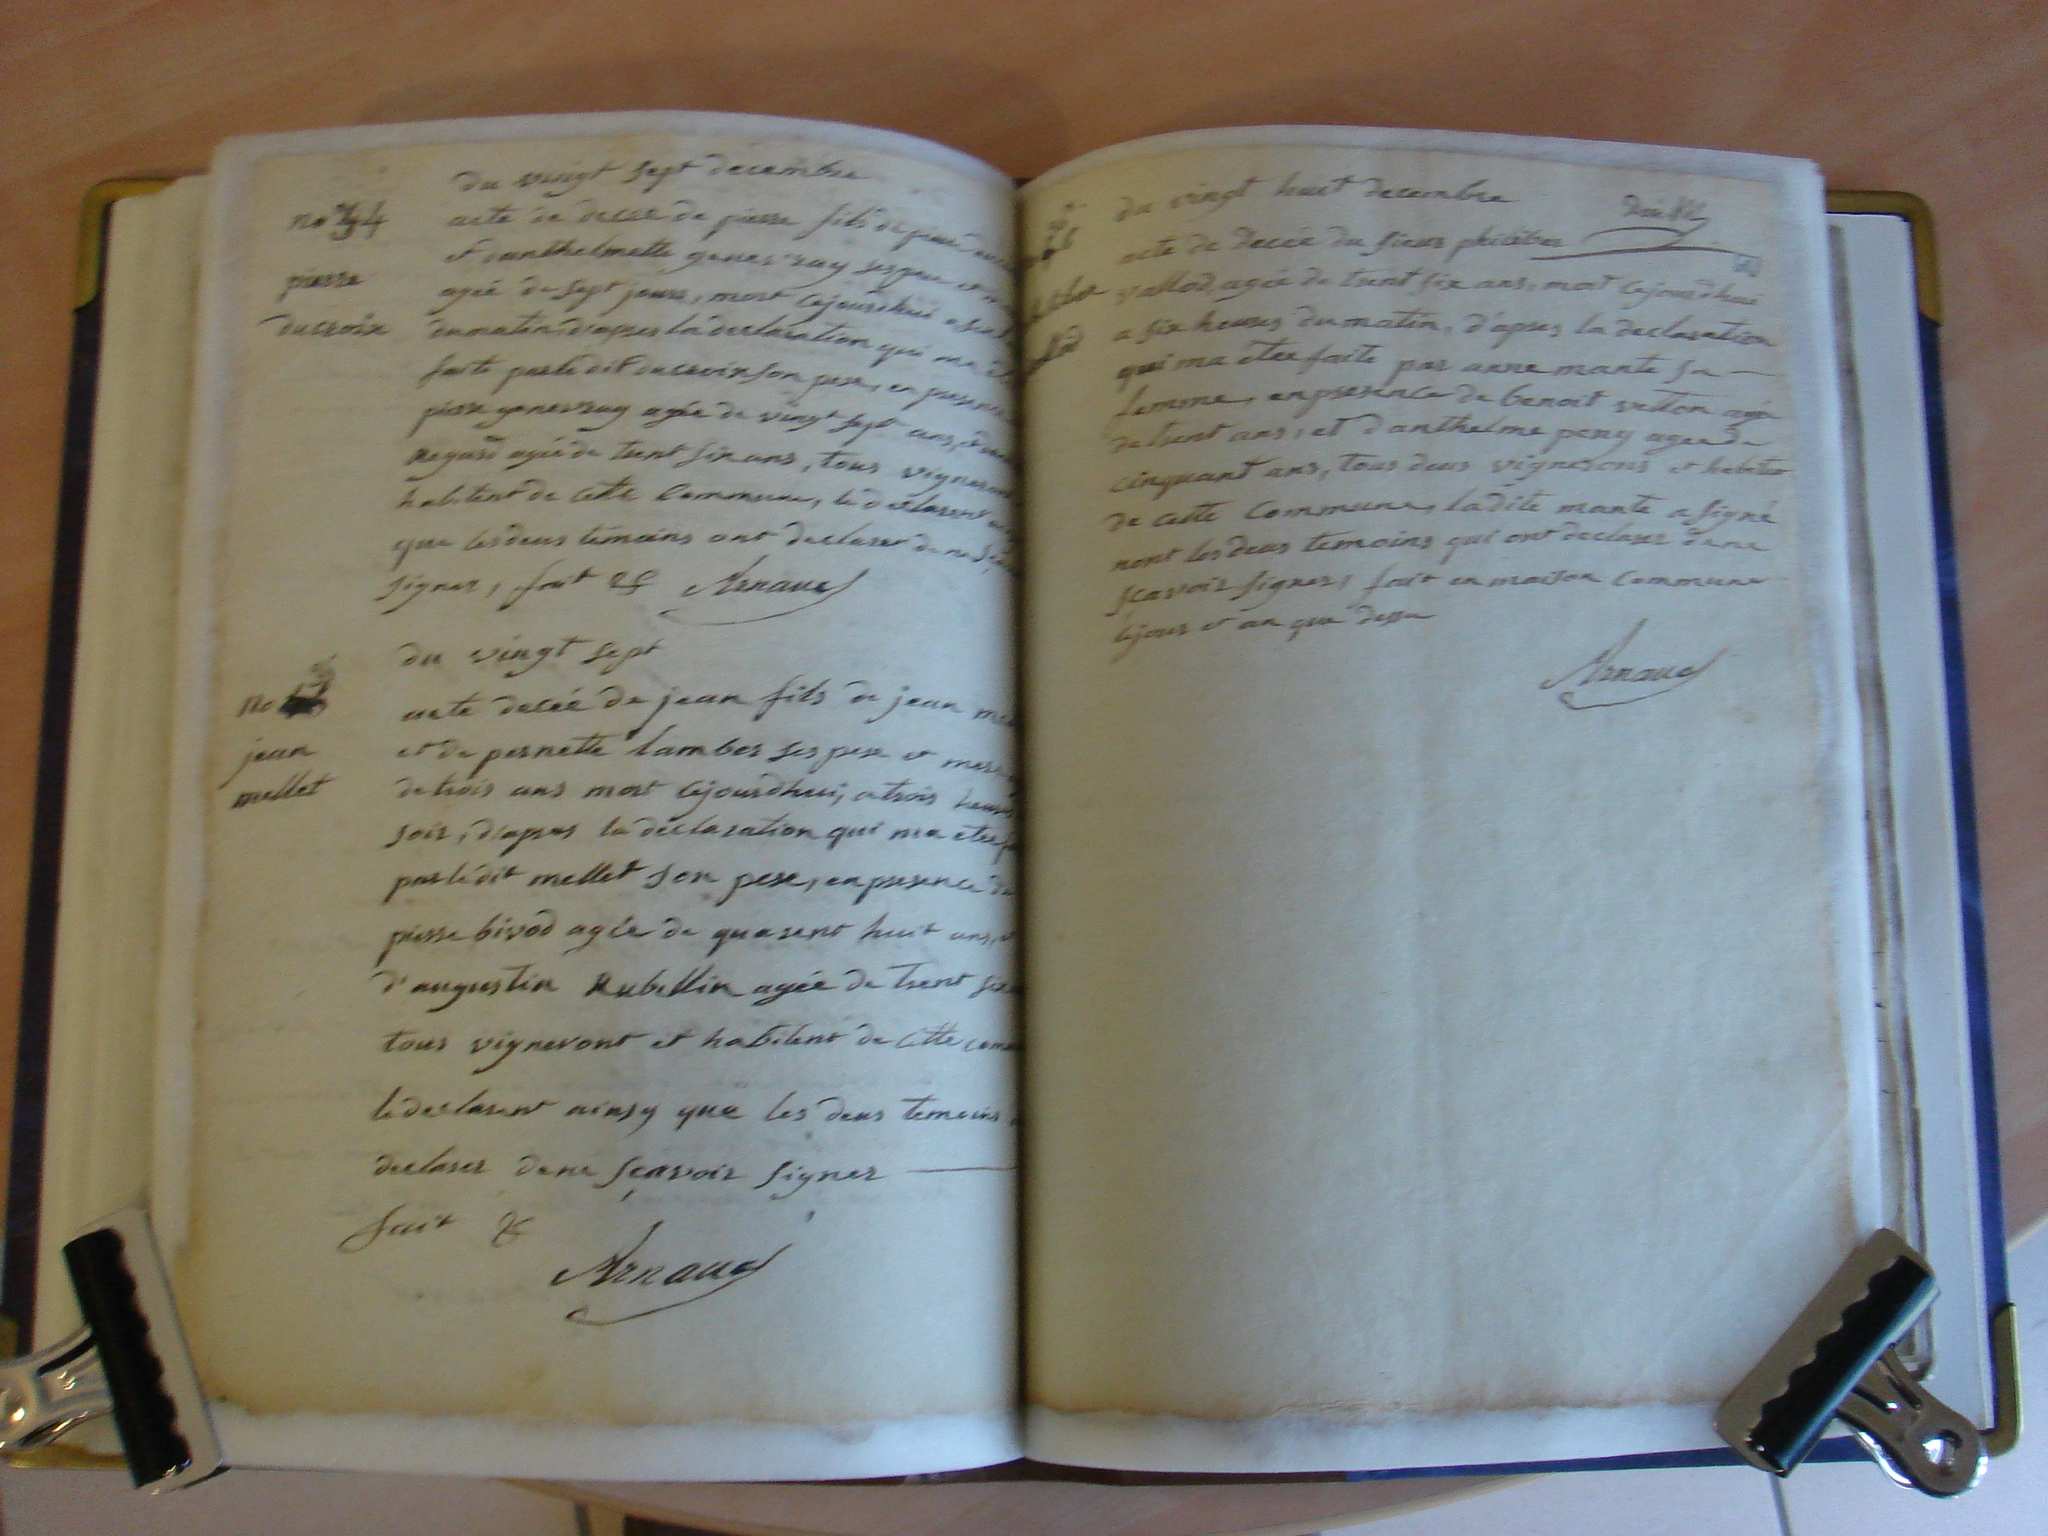 du vingt sept decembre
no 94
pierre
ducroix
acte de decee de pierre fils de pierre
et danthelmette genevray ses pere et
agée de sept jours, mort cejourdhui a
du matin, d'apres la declaration qui ma
faite par le dit ducroix son pere, en presence
pierre genevray agée de vingt sept ans,
Regard agée de trent six ans, tous vigneront
habitent de cette Commune, le declarent
que les deus temoins ont declarer de ne
signer, fait &c Arnaud
du vingt sept
no
jean
mellet
acte decée de jean fils de jean
et de pernette lamber ses pere et mere
de trois ans mort cejourdhui, a trois heures
soir, d'apres la declaration qui ma etee
par le dit mellet son pere, en presence de
pierre bivod agée de quarent huit ans,
d'augustin Rubellin agée de trent six
tous vigneront et habitent de cette
le declarent ainsy que les deus temoins
declarer de ne sçavoir signer
fait &c
Arnaud
du vingt huit decembre
acte de Decée du sieur philiber
vallod, agée de trent six ans, mort cejourdhui
a six heures du matin, d'apres la declaration
qui ma etee faite par anne mante sa
femme, en presence de benoit vetton agée
de trent ans, et danthelme peny agee de
cinquant ans, tous deus vignerons et
de cette Commune, ladite mante a signé
nont les deus temoins qui ont declarer de ne
sçavoir signer, fait en maison Commune
lejour et an que dessu
Arnaud